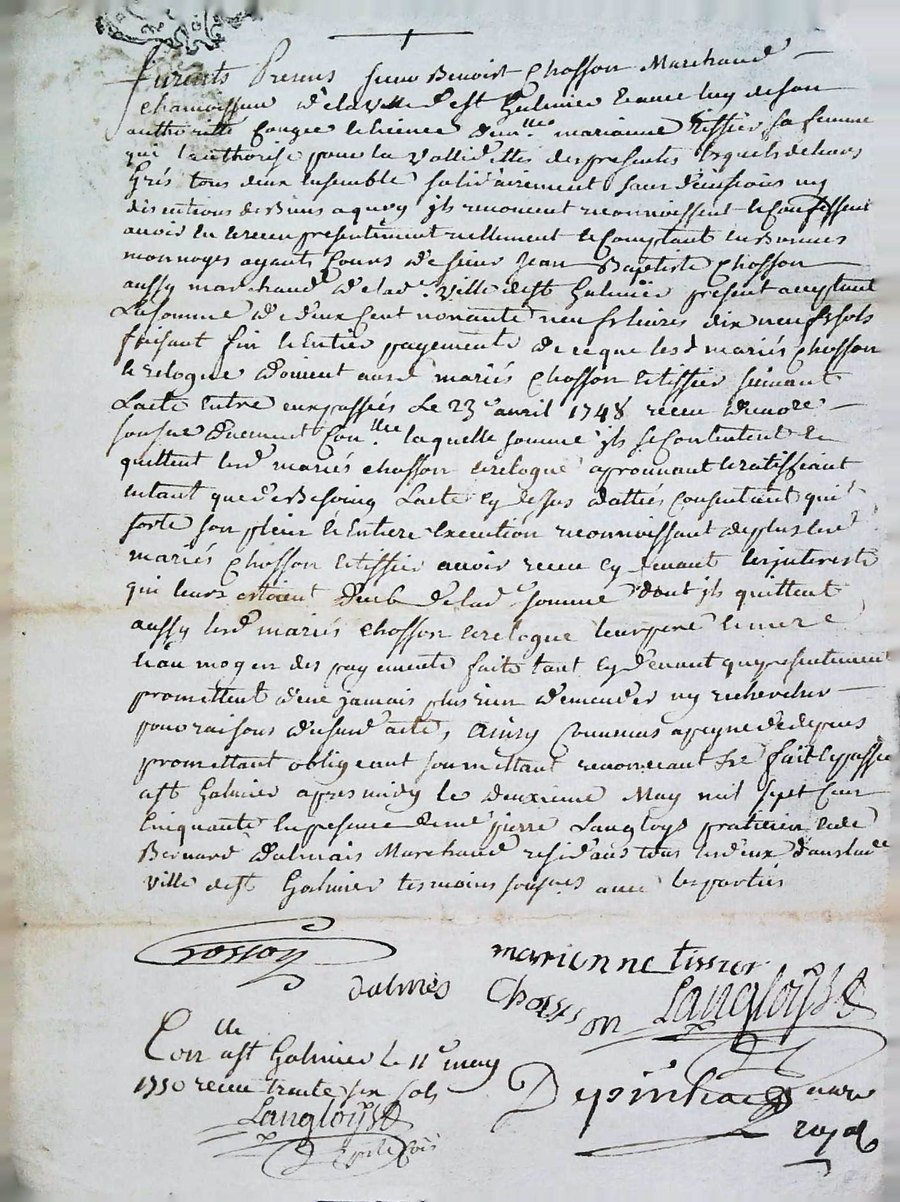 furents Presens sieur Benoist Chosson Marchand
chamoisseur de la ville de st Galmier et avec luy de son
authorité congée et licence dem.lle marianne tissier sa femme
qu'il authorise pour la vallidittes des presentes lesquels de leurs
Grés tous deux ensemble solidairement sans divisions ny
discutions de Biens a quoy jls renoncent reconnoissent et Confessent
avoir eu et receu presentement reellement et Comptant en Bonnes
monnoyes ayants Cours de sieur Jean Baptiste Chosson
aussy marchand de lad. Ville de st Galmier present acceptant
La somme de deux Cent nonante neuf livres dix neuf sols
faisant fin et Entier payements de ce que les d. mariés Chosson
et relogue doivent aux d. mariés Chosson et tissier suivant
Lacte Entre eux passées Le 23e avril 1748 receu et
Con.lle laquelle somme jls se Contentent et
quittent les d. mariés chosson et relogue aprouvant et ratiffiant
entant que de Besoing Lacte cy dessus dattés consentant qu'il
sorte son plein et Entiere Execution reconnoissant de plus les d.
mariés Chosson et tissier avoir receu cy devant les interests
qui leurs estoient deub de lad.e somme dont jls quittent
aussy les d. mariés chosson et relogue leurs pere et mere
et au moyen des payements faits tant cy devant que presentement
promettent de ne jamais plus rien demander ny rechercher
pour raisons du susd. acte, Ainsy Convenus a peyne de depens
promettant obligeant soumettant renonceant &c fait et passé
a st Galmier apres midy le deuxieme May mil sept Cent
Cinquante En presence de me pierre Langloys praticien et de
Bernard dalmais Marchand residans tous les deux dans lad.e
ville de st Galmier tesmoins sousnés avec les parties
Chosson
marienne tissier
dalmés
Chosson
Langloys
Con.lle a st Galmier le 11e may
1750 receu trante six sols
Langloys
Depinhac nore
royal